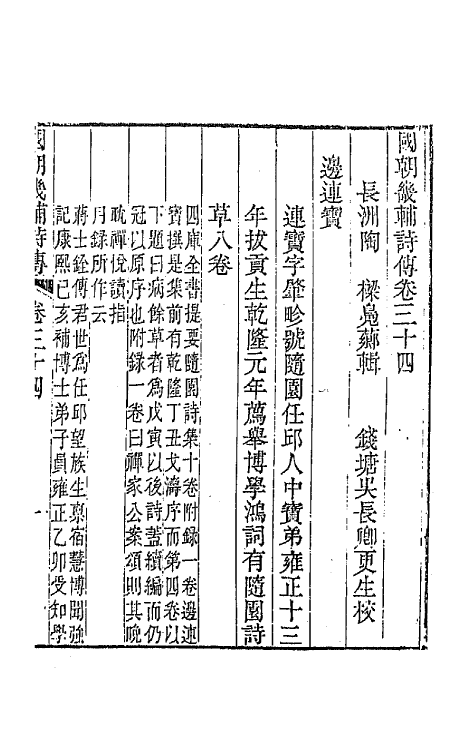 國朝畿輔詩傳卷三十四
長洲陶　樑鳧薌輯　　錢塘吳長卿更生校
邊連寶
連寶字肇畛號隨園任邱人中寶弟雍正十三
年拔貢生乾隆元年薦舉博學鴻詞有隨園詩
草八卷
四庫全書提要隨園詩集十卷附錄一卷邊連
寶撰是集前有乾隆丁丑戈濤序而第四卷以
下題曰病餘草者為戊寅以後詩蓋續編而仍
冠以原序也附錄一卷曰禪家公案頌則其晚
耽禪悅讀指
月錄所作云
蔣士銓傳君世為任邱望族生禀宿慧博聞強
記康熙己亥補博士弟子員雍正乙卯受知學
國朝畿輔詩傳　卷三十四　一